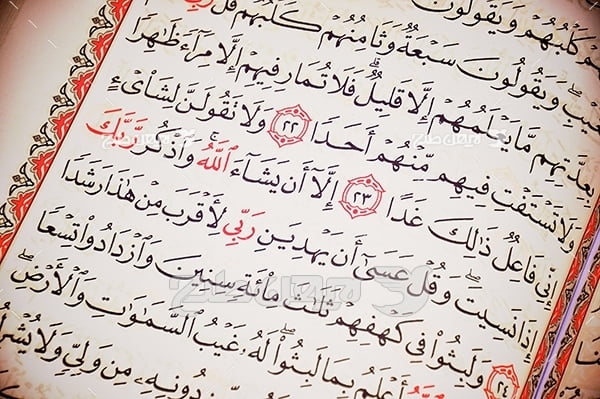 هُمْ كَلْبُهُمْ وَيَقُولُونَ
وَيَقُولُونَ سَبْعَةٌ وَثَامِنُهُمْ كَلْبُهُمْ قُل رَّبِّي
بِعِدَّتِهِم مَّا يَعْلَمُهُمْ إِلَّا قَلِيلٌ فَلَا تُمَارِ فِيهِمْ إِلَّا مِرَآءً ظَٰهِرًا
وَلَا تَسْتَفْتِ فِيهِم مِّنْهُمْ أَحَدًا ٢٢ وَلَا تَقُولَنَّ لِشَاىْءٍ
إِنِّي فَاعِلٌ ذَٰلِكَ غَدًا ٢٣ إِلَّآ أَن يَشَآءَ ٱللَّهُ وَٱذْكُر رَّبَّكَ
إِذَا نَسِيتَ وَقُلْ عَسَىٰٓ أَن يَهْدِيَنِ رَبِّي لِأَقْرَبَ مِنْ هَٰذَا رَشَدًا
٢٤ وَلَبِثُوا۟ فِي كَهْفِهِمْ ثَلَٰثَ مِا۟ئَةٍ سِنِينَ وَٱزْدَادُوا۟ تِسْعًا
أَعْلَمُ بِمَا لَبِثُوا۟ لَهُۥ غَيْبُ ٱلسَّمَٰوَٰتِ وَٱلْأَرْضِ
دُونِهِۦ مِن وَلِيٍّ وَلَا يُشْرِ